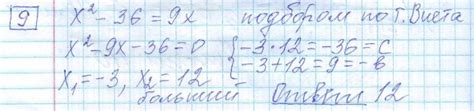 9 x² - 36 = 9x подбором по т. Виета
x² - 9x - 36 = 0 { -3·12 = -36 = c
x₁ = -3, x₂ = 12 -3 + 12 = 9 = -b
больший Ответ 12